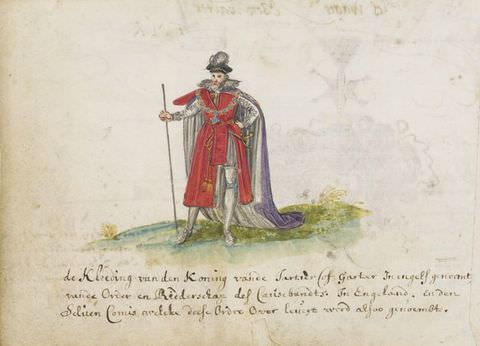 de Kleding van den Koning vande Jartier (of Garter In engels genaemt
vande Order en Ridderschap des Cousebandts. In Engeland. en den
Selven Comis welcke deese Ordre Over levert word alsoo genoembt.